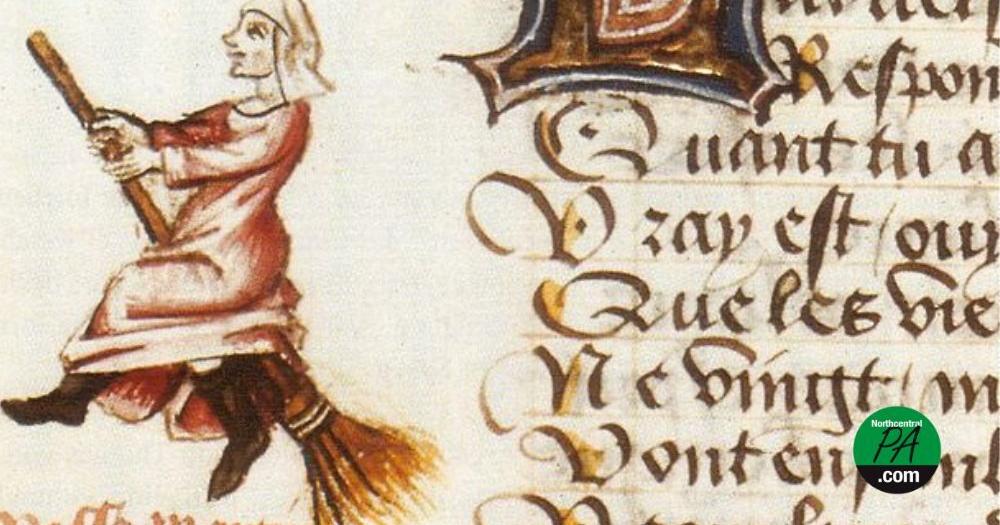 Respon
Quant tu a
Vray est / ouy
Que les vie
Ne vingt / m
Vont en
Northcentral
PA
.com